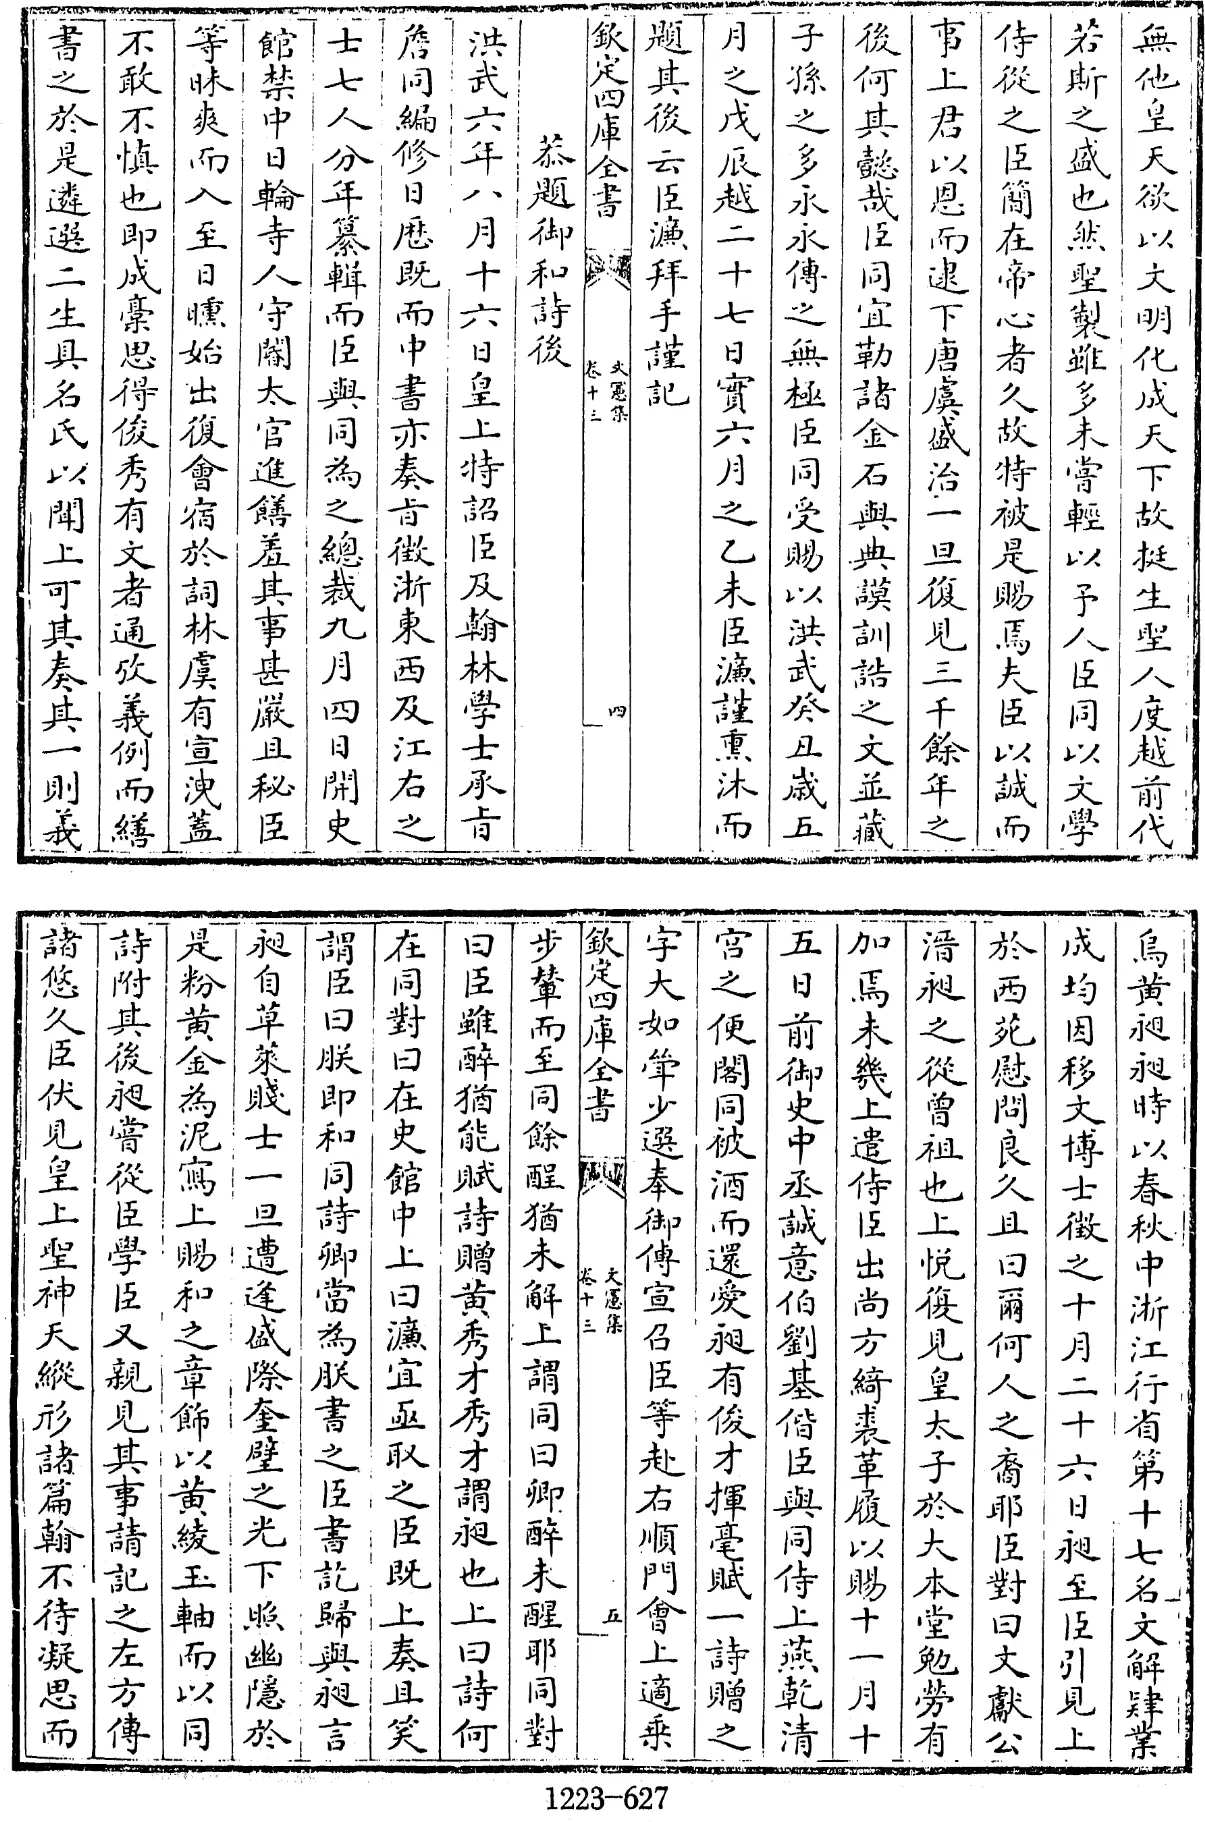 無他皇天欲以文明化成天下故挺生聖人度越前代
若斯之盛也然聖製雖多未嘗輕以予人臣同以文學
侍從之臣簡在帝心者久故特被是賜焉夫臣以誠而
事上君以恩而逮下唐虞盛治一旦復見三千餘年之
後何其懿哉臣同宜勒諸金石與典謨訓誥之文並藏
子孫之多永永傳之無極臣同受賜以洪武癸丑歲五
月之戊辰越二十七日實六月之乙未臣濂謹熏沐而
題其後云臣濂拜手謹記
欽定四庫全書
文憲集
卷十三
四
恭題御和詩後
洪武六年八月十六日皇上特詔臣及翰林學士承旨
詹同編修日厯既而中書亦奏旨徵浙東西及江右之
士七人分年纂輯而臣與同為之總裁九月四日開史
館禁中日輪寺人守閽太官進饍羞其事甚嚴且秘臣
等昧爽而入至日曛始出復會宿於詞林虞有宣洩蓋
不敢不慎也即成槀思得俊秀有文者通攷義例而繕
書之於是遴選二生具名氏以聞上可其奏其一則義
烏黄昶昶時以春秋中浙江行省第十七名文解肄業
成均因移文博士徵之十月二十六日昶至臣引見上
於西苑慰問良久且曰爾何人之裔耶臣對曰文獻公
溍昶之從曾祖也上悦復見皇太子於大本堂勉勞有
加焉未幾上遣侍臣出尚方綺裘革履以賜十一月十
五日前御史中丞誠意伯劉基偕臣與同侍上燕乾清
宫之便閣同被酒而還愛昶有俊才揮毫賦一詩贈之
字大如筆少選奉御傳宣召臣等赴右順門會上適乗
欽定四庫全書
文憲集
卷十三
五
步輦而至同餘酲猶未解上謂同曰卿醉未醒耶同對
曰臣雖醉猶能賦詩贈黄秀才秀才謂昶也上曰詩何
在同對曰在史館中上曰濂宜亟取之臣既上奏且笑
謂臣曰朕即和同詩卿當為朕書之臣書訖歸與昶言
昶自草萊賤士一旦遭逢盛際奎璧之光下照幽隱於
是粉黄金為泥寫上賜和之章飾以黄綾玉軸而以同
詩附其後昶嘗從臣學臣又親見其事請記之左方傳
諸悠久臣伏見皇上聖神天縱形諸篇翰不待凝思而
1223-627